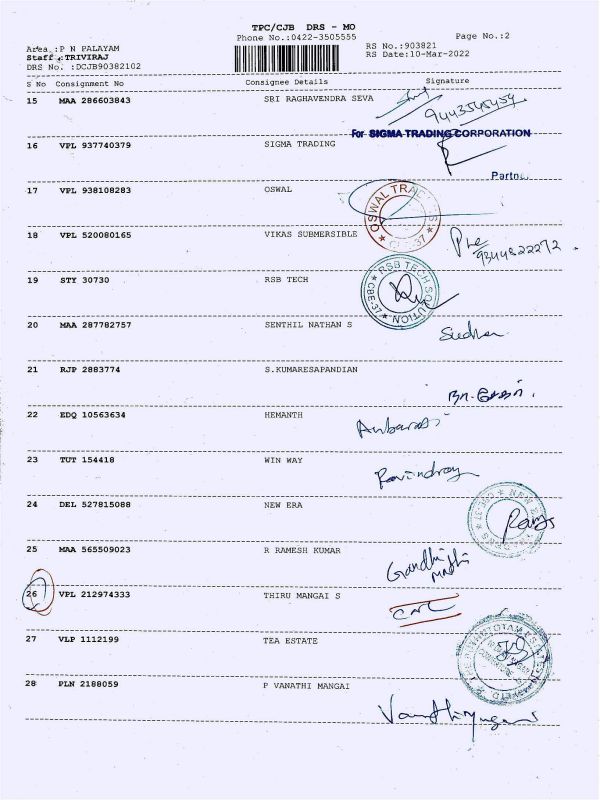 TPC/CJB DRS - MO
Phone No.:0422-3505555 Page No.:2
Area :P N PALAYAM RS No.:903821
Staff :TRIVIRAJ RS Date:10-Mar-2022
DRS No. :DCJB90382102
S No Consignment No Consignee Details Signature
15 MAA 286603843 SRI RAGHAVENDRA SEVA
9443545454
For SIGMA TRADING CORPORATION
16 VPL 937740379 SIGMA TRADING
Partne
17 VPL 938108283 OSWAL
OSWAL TRADERS ★ CBE-37 ★
18 VPL 520080165 VIKAS SUBMERSIBLE
9344822272
19 STY 30730 RSB TECH
RSB TECH SOLUTION ★ CBE-37 ★
20 MAA 287782757 SENTHIL NATHAN S
Sudha
21 RJP 2883774 S.KUMARESAPANDIAN
22 EDQ 10563634 HEMANTH
Anbarasi
23 TUT 154418 WIN WAY
Ravindray
24 DEL 527815088 NEW ERA
25 MAA 565509023 R RAMESH KUMAR
Gandhi
Mathi
26 VPL 212974333 THIRU MANGAI S
27 VLP 1112199 TEA ESTATE
28 PLN 2188059 P VANATHI MANGAI